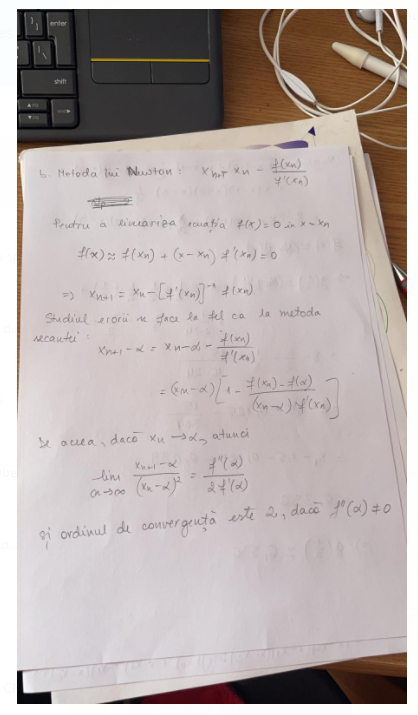 enter
shift
b. Metoda lui Newton: xₙ₊₁ = xₙ - f(xₙ)/f'(xₙ)
Pentru a lineariza ecuația f(x)=0 în x=xₙ
f(x) ≈ f(xₙ) + (x-xₙ) f'(xₙ) = 0
=> xₙ₊₁ = xₙ - [f'(xₙ)]⁻¹ f(xₙ)
Studiul erorii se face la fel ca la metoda
secantei:
xₙ₊₁ - α = xₙ - α - f(xₙ)/f'(xₙ)
= (xₙ-α) [1 - (f(xₙ) - f(α))/((xₙ-α) f'(xₙ))]
De aceea, dacă xₙ → α, atunci
lim n→∞ (xₙ₊₁-α)/(xₙ-α)² = f''(α)/2f'(α)
și ordinul de convergență este 2, dacă f''(α) ≠ 0